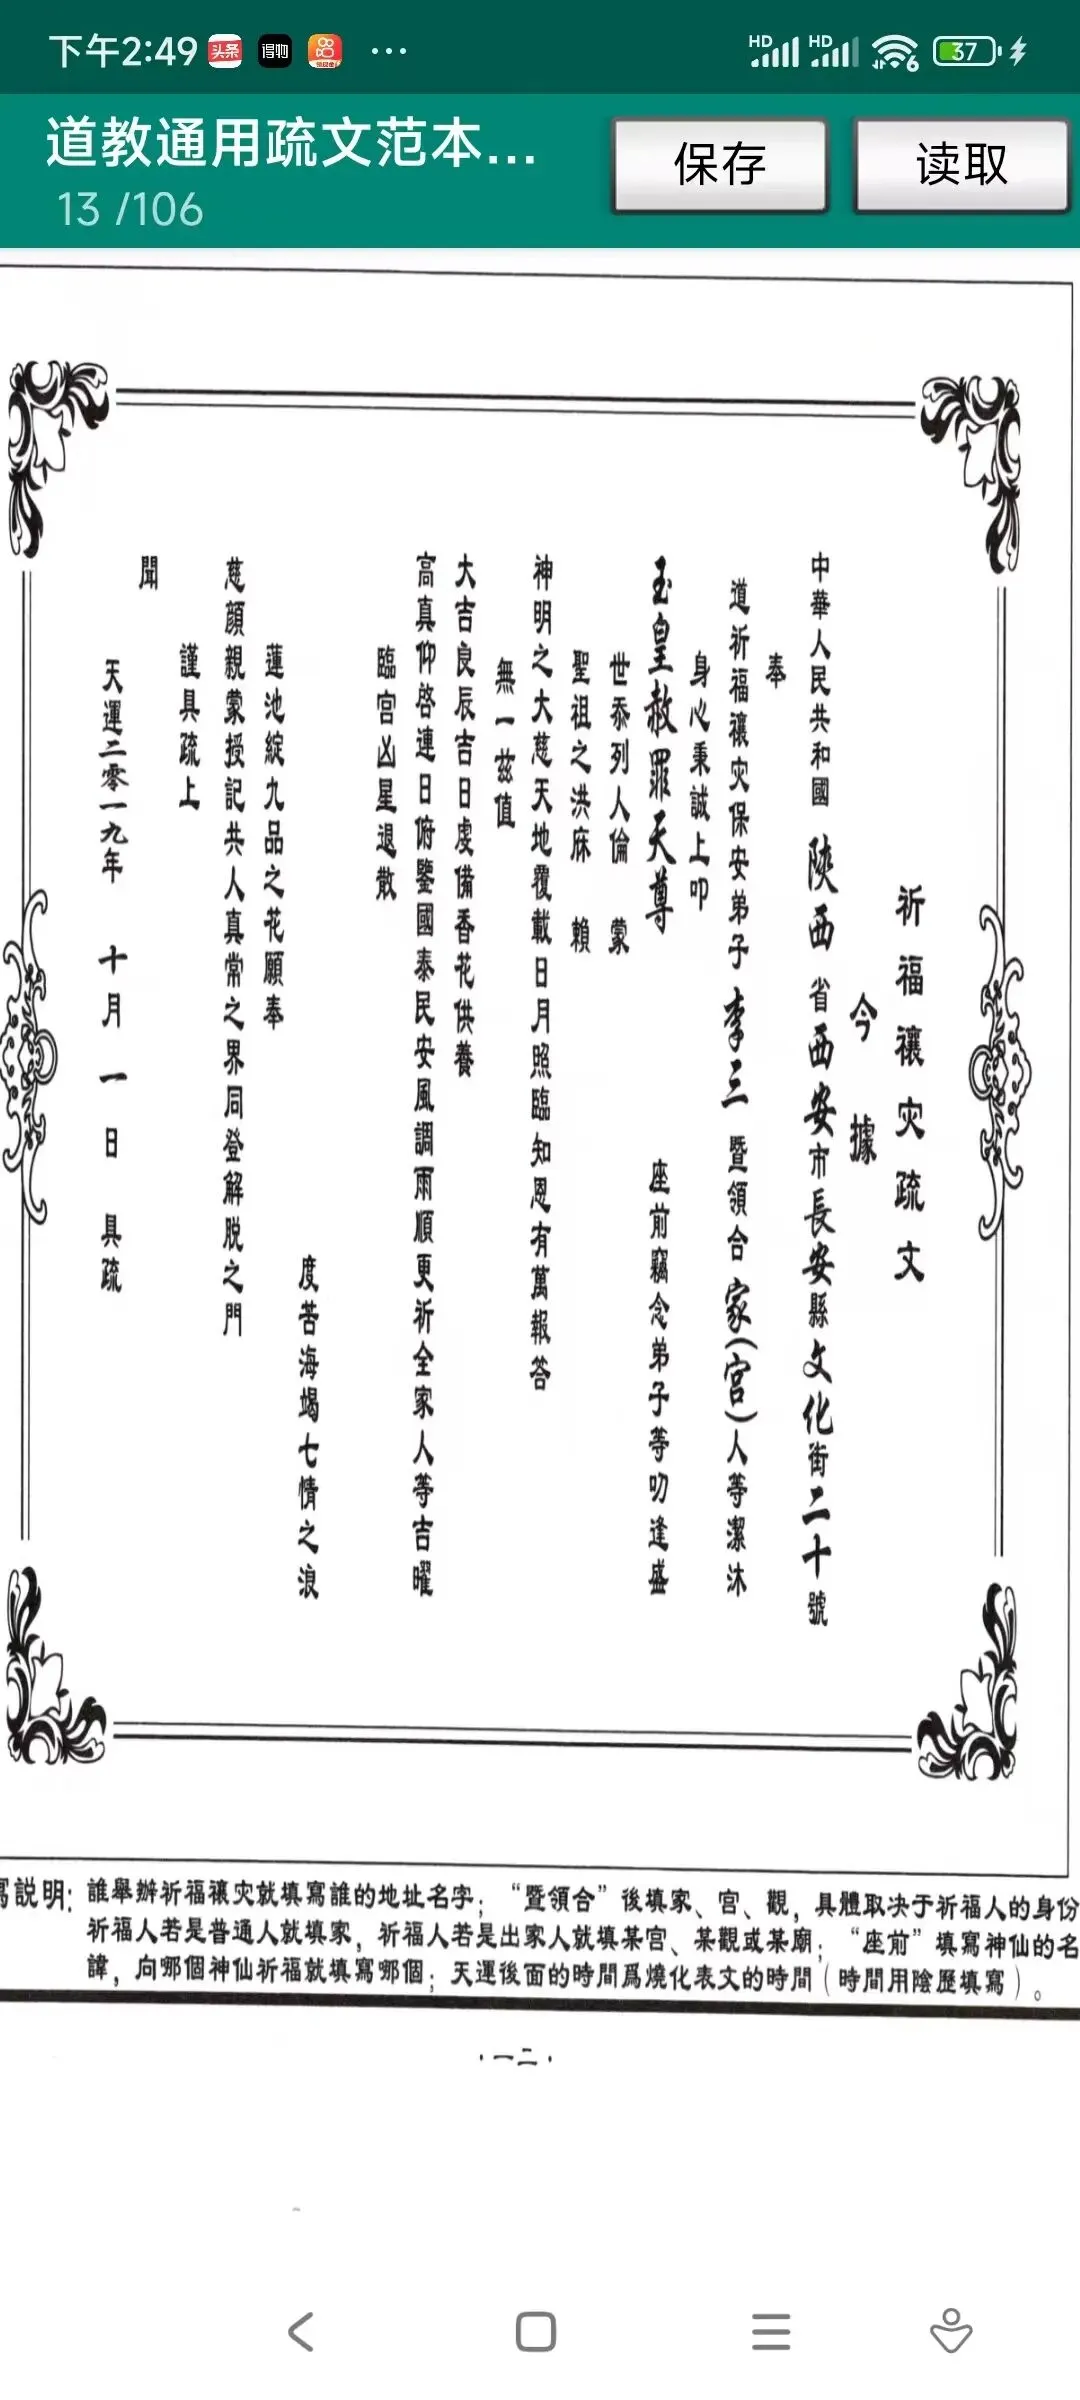 下午2:49 头条 得物 ...
HD HD 6 37
道教通用疏文范本...
13 /106
保存
读取
祈福禳灾疏文
今據
中華人民共和國 陝西 省 西安 市 長安 縣 文化 街 二十 號
奉
道祈福禳灾保安弟子 李三 暨領合 家(宫)人等潔沐
身心秉誠上叩
玉皇赦罪天尊 座前竊念弟子等叨逢盛
世忝列人倫 蒙
聖祖之洪庥 賴
神明之大慈天地覆載日月照臨知恩有萬報答
無一兹值
大吉良辰吉日虔備香花供養
高真仰啓連日俯鑒國泰民安風調雨順更祈全家人等吉曜
臨宫凶星退散
度苦海竭七情之浪
蓮池綻九品之花願奉
慈顔親蒙授記共人真常之界同登解脱之門
謹具疏上
聞
天運二零一九年 十月一日 具疏
寫説明:誰舉辦祈福禳灾就填寫誰的地址名字;“暨領合”後填家、宫、觀,具體取决于祈福人的身份
祈福人若是普通人就填家,祈福人若是出家人就填某宫、某觀或某廟;“座前”填寫神仙的名
諱,向哪個神仙祈福就填寫哪個;天運後面的時間爲燒化表文的時間(時間用陰歷填寫)。
·一二·